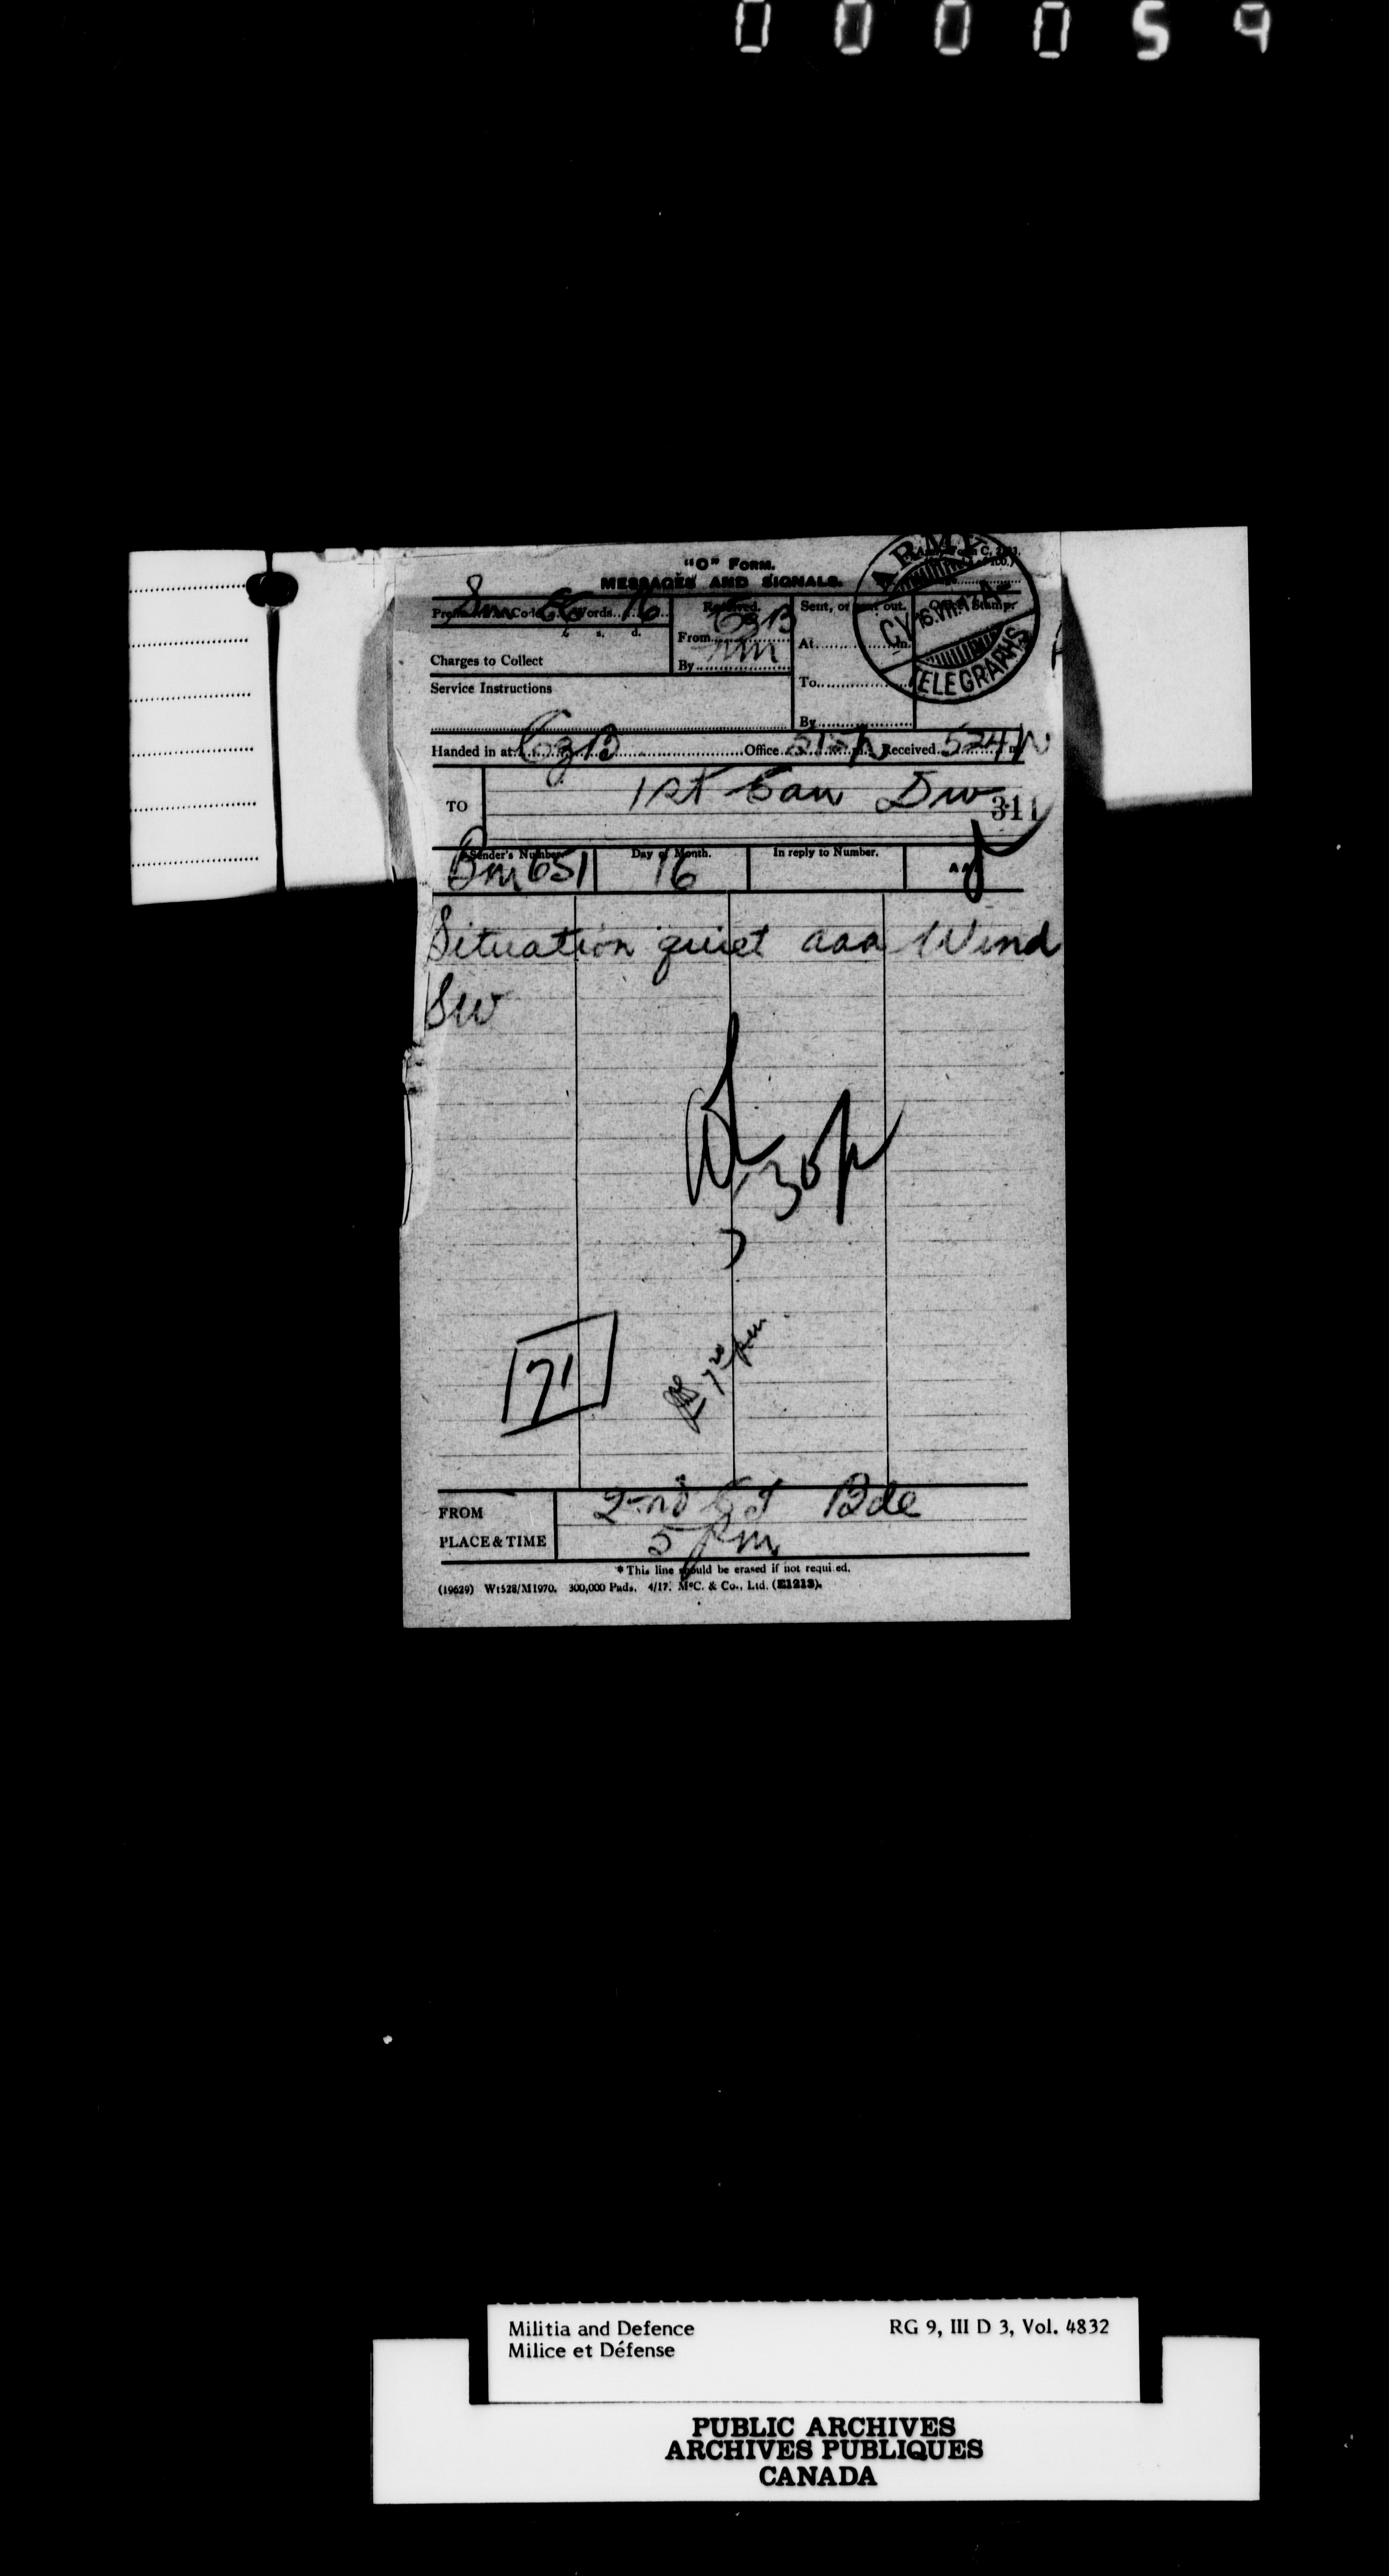 000059
"C" FORM.
MESSAGES AND SIGNALS.
Sm Code Words 16
Received.
Sent, or sent out.
Office Stamp.
ARMY
CY 16.VII.17
TELEGRAPHS
£ s. d.
From CZB
At
Charges to Collect
By
To
Service Instructions
By
Handed in at CZB Office 515 p m. Received 524 p m
TO
1st Can Div
311
Sender's Number.
Day of Month.
In reply to Number.
Bm 651
16
AAA
Situation quiet aaa Wind
SW
71
7 20 pm
FROM
2nd Bde
PLACE & TIME
5 pm
* This line should be erased if not required.
(19629) Wt528/M1970. 300,000 Pads. 4/17. McC. & Co., Ltd. (E1213).
Militia and Defence
RG 9, III D 3, Vol. 4832
Milice et Défense
PUBLIC ARCHIVES
ARCHIVES PUBLIQUES
CANADA